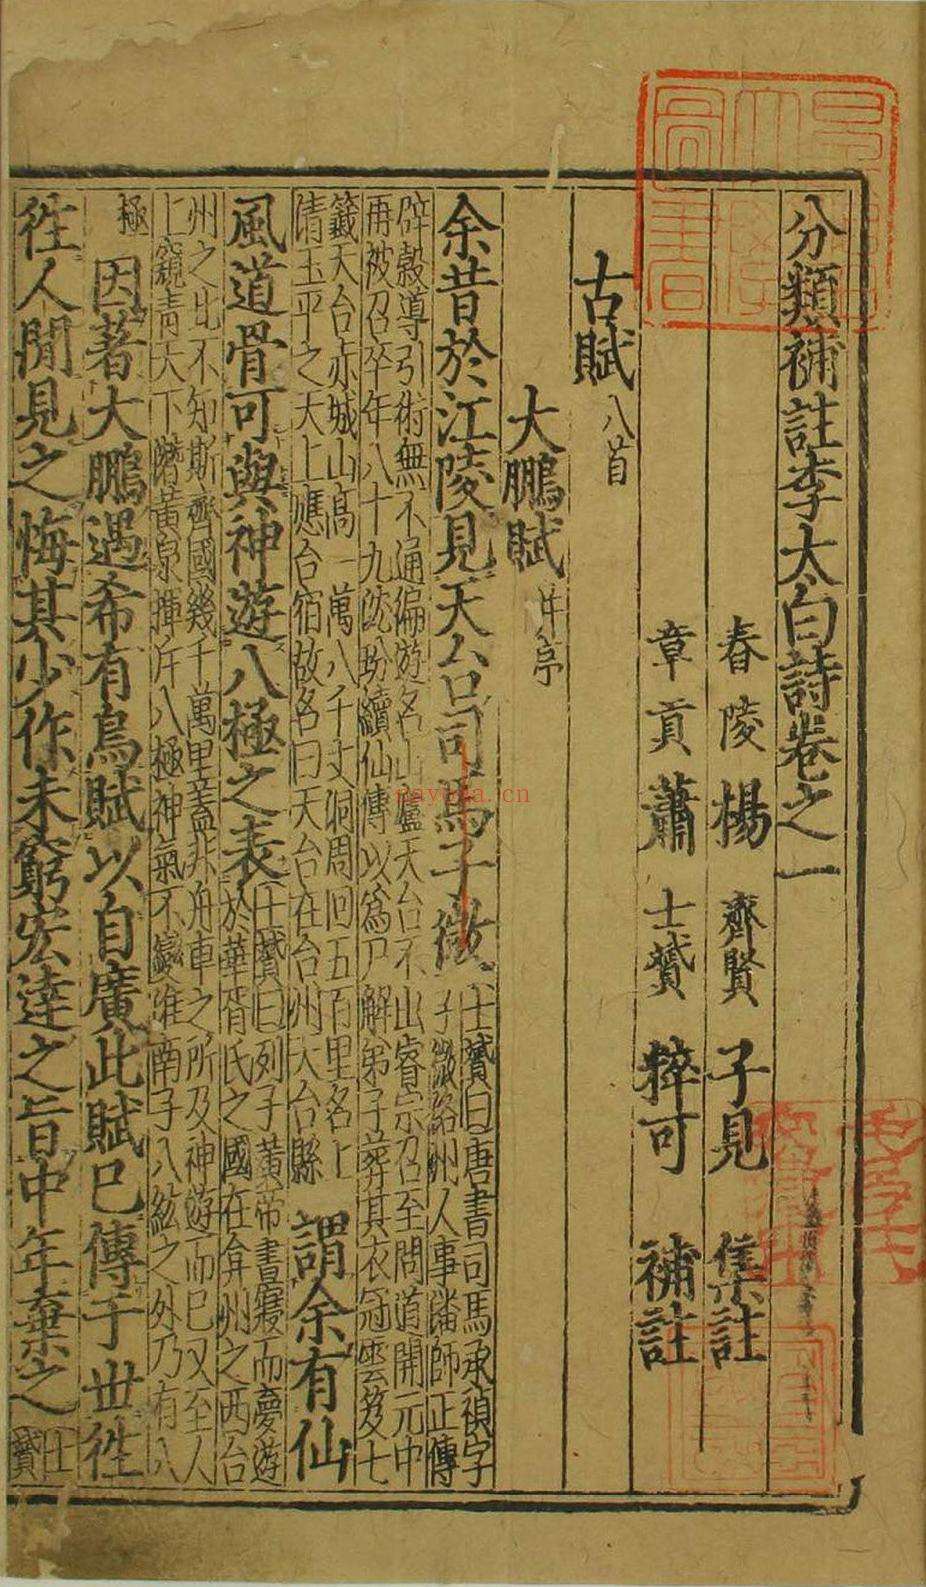 分類補註李太白詩卷之一
舂陵楊齊賢子見集註
章貢蕭士贇粹可補註
古賦八首
大鵬賦并序
余昔於江陵見天台司馬子微
士贇曰唐書司馬承禎字
子微洛州人事潘師正傳
辟穀導引術無不通徧遊名山廬天台不出睿宗召至問道開元中
再被召卒年八十九沈玢續仙傳以爲尸解弟子葬其衣冠雲笈七
籤天台赤城山高一萬八千丈洞周回五百里名上
清玉平之天上應台宿故名曰天台在台州天台縣
謂余有仙
風道骨可與神遊八極之表
士贇曰列子黃帝晝寢而夢遊
於華胥氏之國在弇州之西台
州之北不知斯齊國幾千萬里蓋非舟車之所及神遊而已又至人
上窺青天下潛黃泉揮斥八極神氣不變淮南子八紘之外乃有八
極
因著大鵬遇希有鳥賦以自廣此賦已傳于世徃
徃人閒見之悔其少作未窮宏達之旨中年棄之
士
贇
nayona.cn